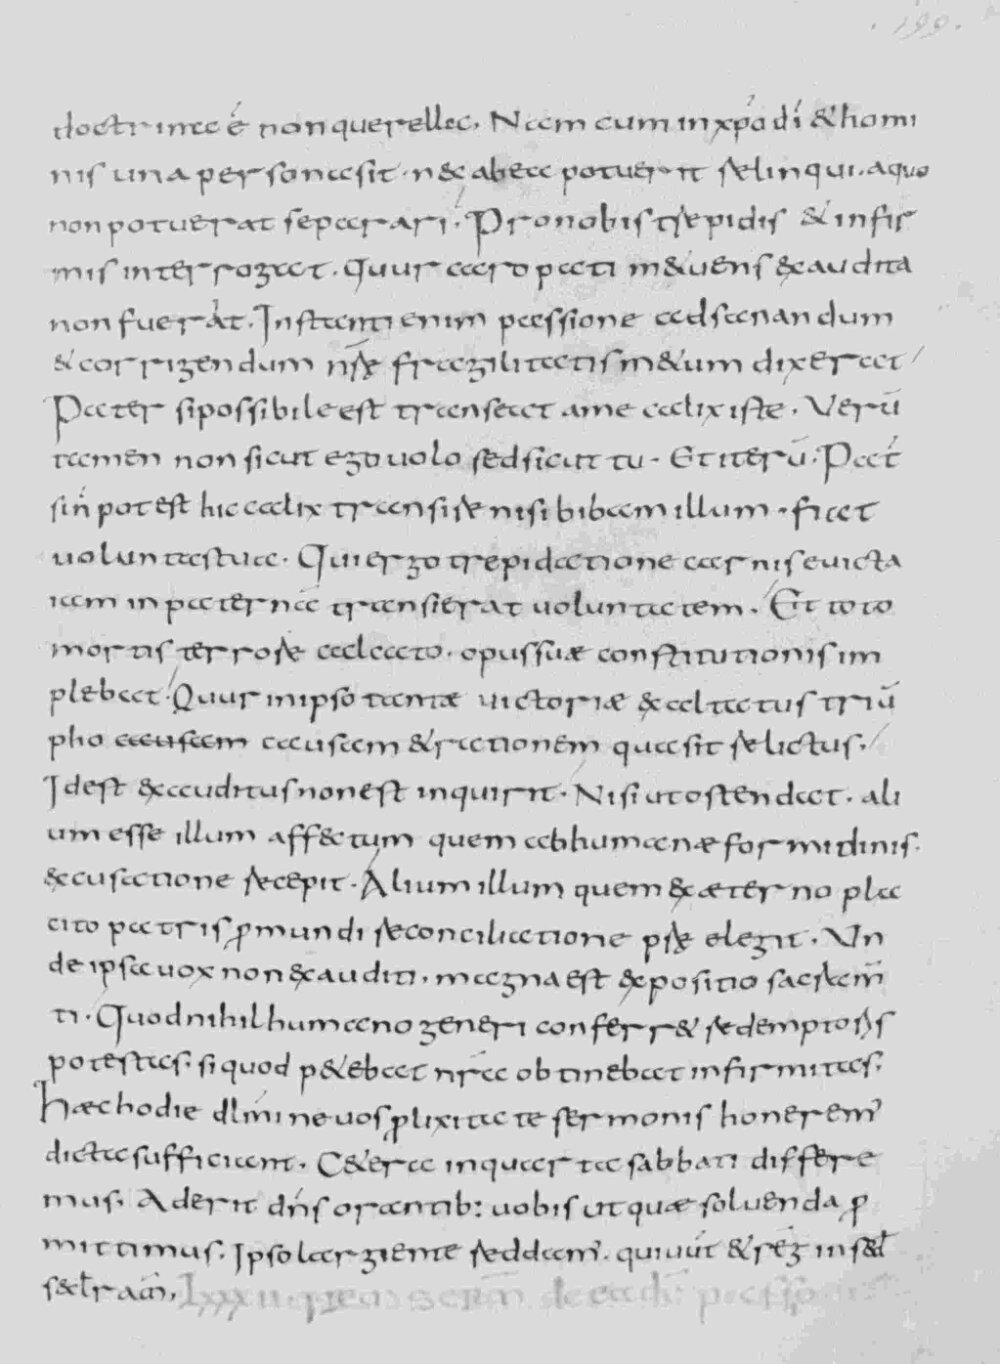 .199.
doctrinae é non querella. Nam cum in xp̄o dī & homi
nis una persona sit. nec ab ea potuerit relinqui. a quo
non potuerat separari. Pro nobis trepidis & infir
mis interrogat. Quur caro pati metuens exaudita
non fuerat. Instanti enim passione ad sanandum
& corrigendum nrae fragilitatis metum dixerat
Pater si possibile est transeat a me calix iste. Verū
tamen non sicut ego uolo sed sicut tu. Et iterū. Pat
si n̄ potest hic calix transire nisi bibam illum. fiat
uoluntas tua. Qui ergo trepidatione carnis euicta
iam in paternā transierat uoluntatem. Et toto
mortis terrore calcato. opus suae constitutionis im
plebat. Quur in ipso tantae uictoriae exaltatus triū
pho causam causam & rationem qua sit relictus.
Id est exauditus non est inquirit. Nisi ut ostendat. ali
um esse illum affectum quem ab humanae formidinis.
excusatione recepit. Alium illum quem ex aeterno pla
cito patris p mundi reconciliatione psae elegit. Un
de ipsa uox non exauditi. magna est expositio sacram̄
ti. Quod nihil humano generi conferret redemptoris
potestas. si quod petebat nr̄a obtineret infirmitas.
Haec hodie dlmi ne uos plixitate sermonis honerem'
dicta sufficiant. Cetera in quarta sabbati differe
mus. Aderit dn̄s orantib: uobis ut quae soluenda p
mittimus. Ipso largiente reddam'. qui uiuit & reg in sctla
sctloram.